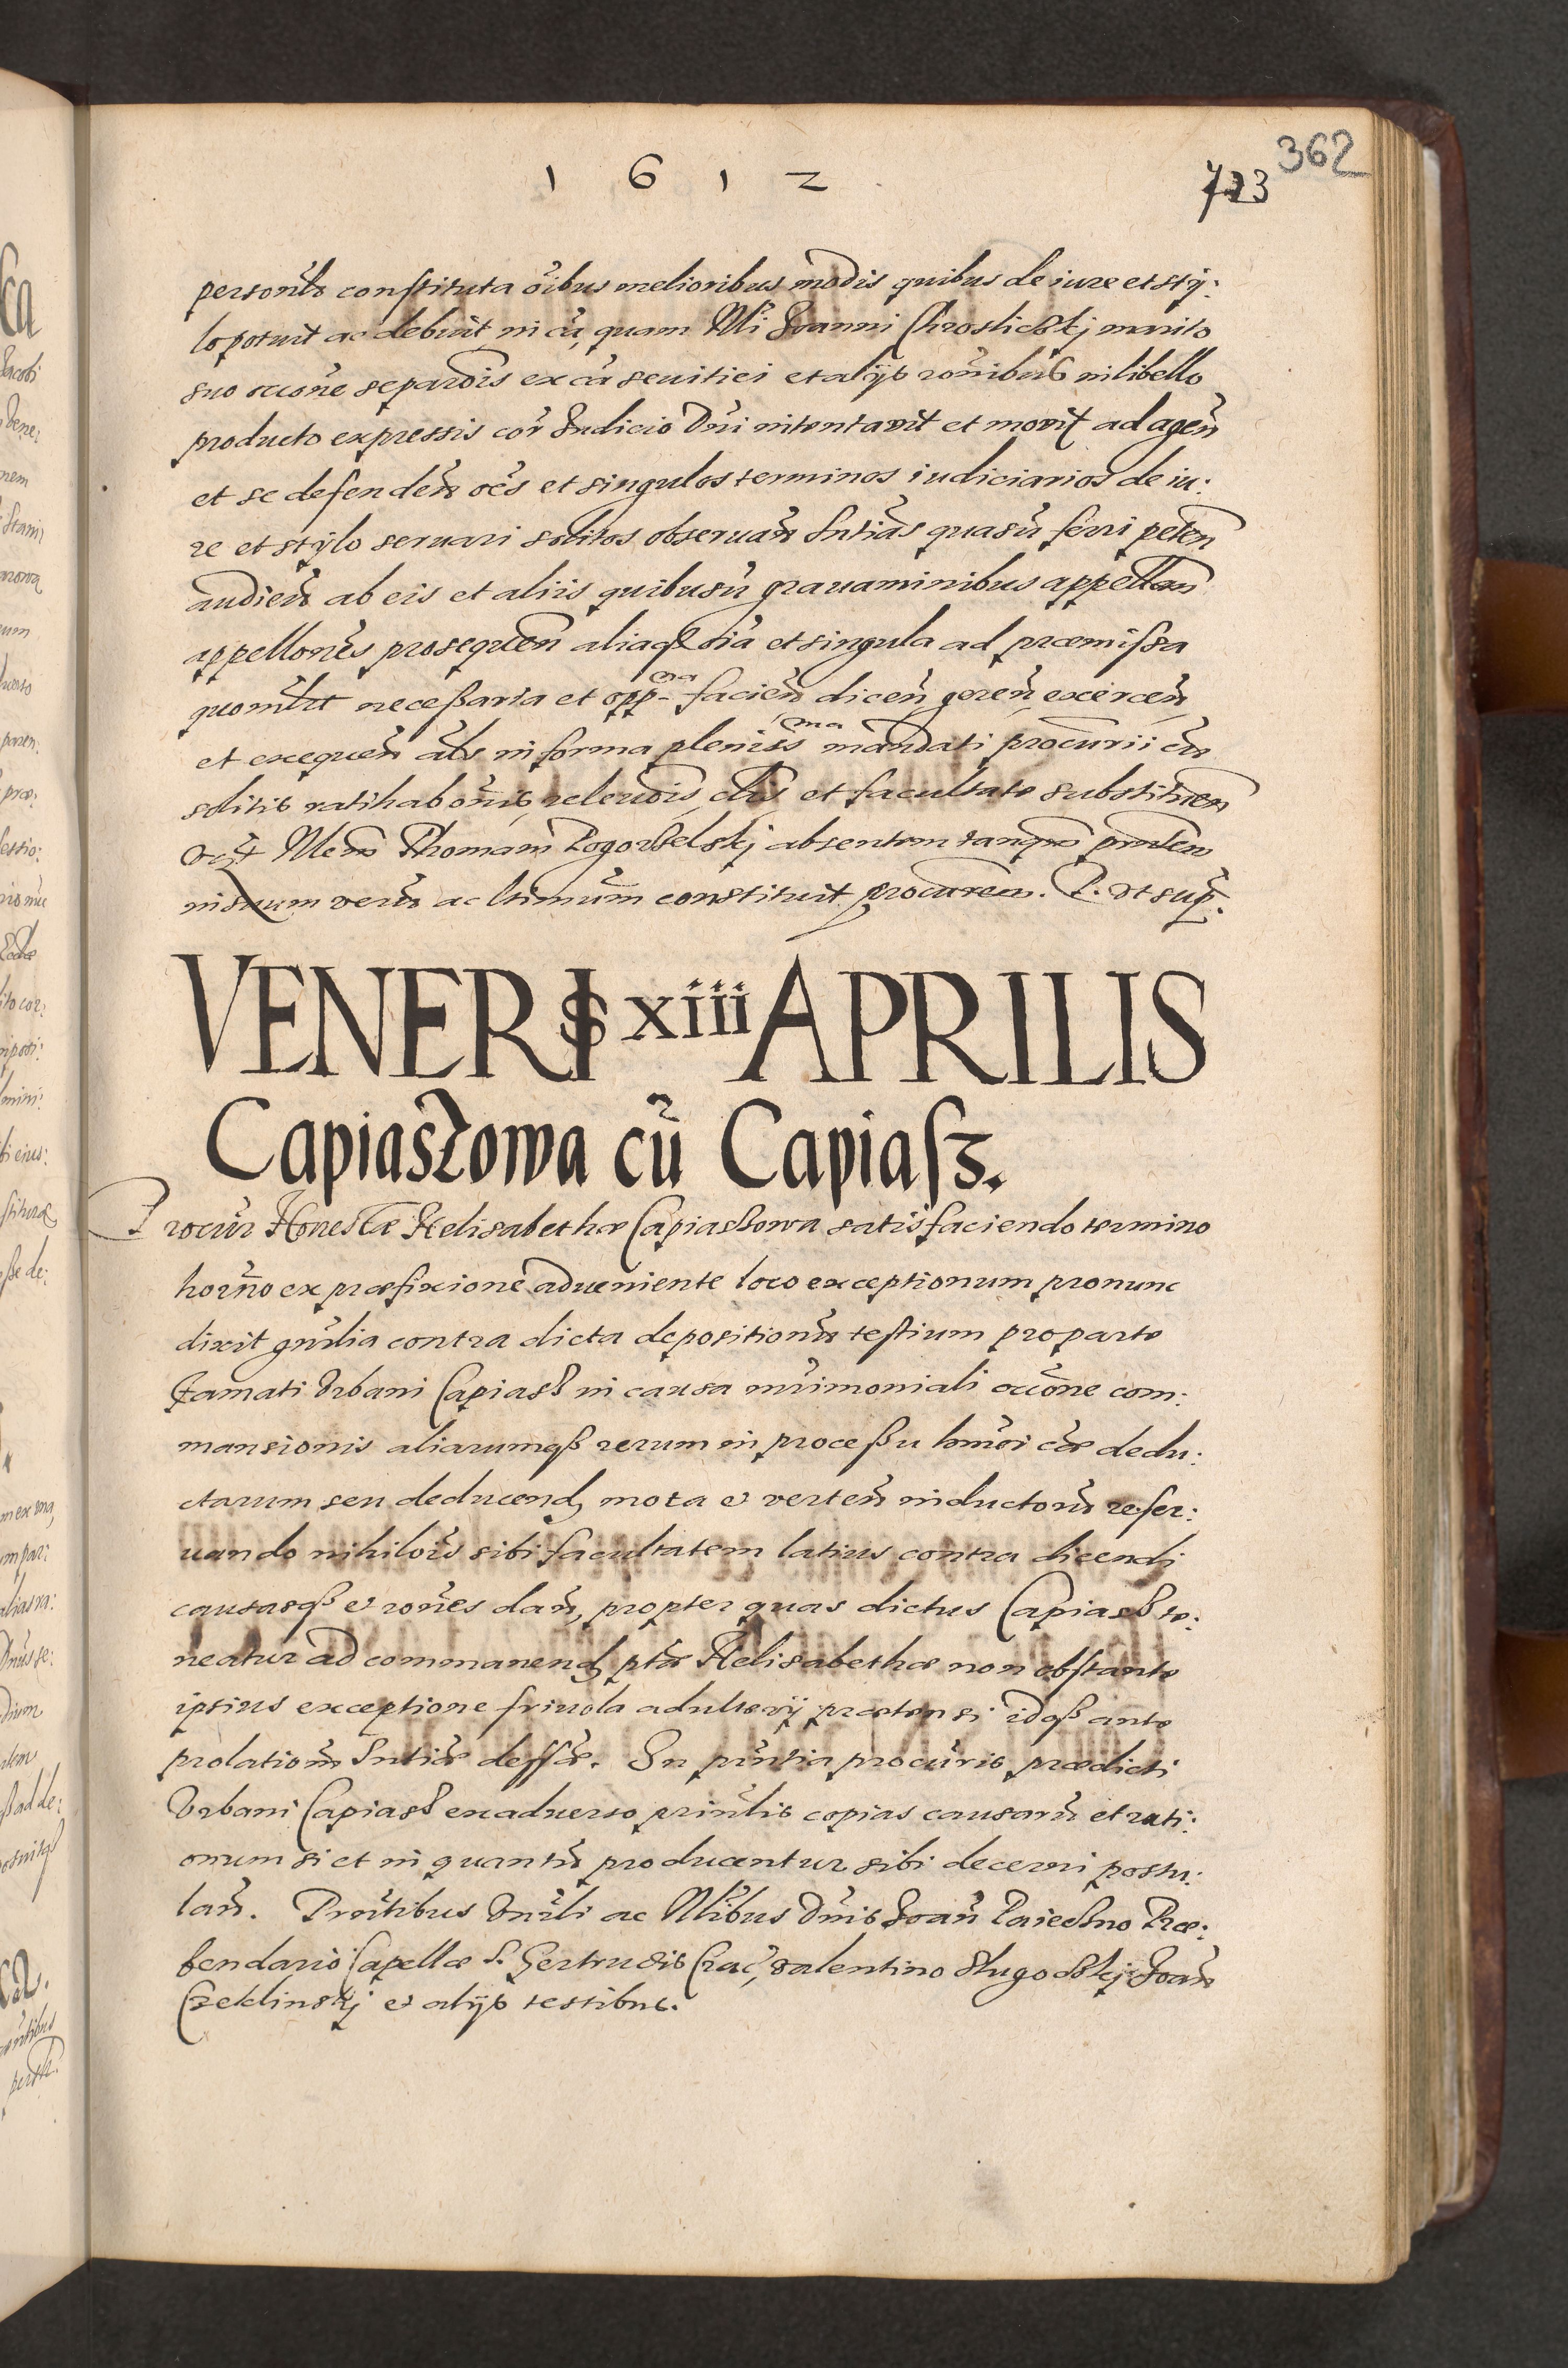 1 6 1 2
723 362
personłr constituta oībus melioribus modis quibus de iure et sty:
lo potuit ac debuit, in cā, quam Nłi Joanni Chroslickskj marito
suo occōne separōis ex cā seuitiei et alijs rōnibus in libello
producto expressis cor Iudicio Dni intentavit et movit ad agen̄
et se defenden̄ oēs et singulos terminos iudiciarios de iu:
re et stylo seruari solitos obseruan̄ sntias quascū ferri peten̄
audien̄ ab eis et aliis quibuscū grauaminibus appellan̄
appellōnes prosequen̄ aliaqȝ oīa et singula ad præmissa
quomłt necessaria et opp-ena facien̄ dicen̄, geren̄, exercen̄
et exequen̄ als in forma pleniss ima mandati procurii cū
solitis ratihabōnis, releuōis clis et facultate substituen̄
Nłem Thomam Pogorzelskj absentem tanq̄ prntem
verū ac ltimum constituit procurem. P. vt sup̄.
VENERIS xiii APRILIS
Capiaszowa cū Capiasz.
Procur̄ Honestæ Helisabethæ Capiaszowa satisfaciendo termino
horn̄o ex præfixione adueniente loco exceptionum pronunc
dixit gnr̄lia contra dicta depositionū testium pro parte
Famati Vrbani Capiasz in causa mr̄imoniali occōne com:
mansionis aliarumqȝ rerum in processu hmōi cæ dedu:
ctarum seu deducend, mota et verten̄ inductorū reser:
uando nihilōis sibi facultatem latius contra dicendi
causasqȝ et rōnes dan̄, propter quas dictus Capiasz te:
neatur ad commanend, ptæ Helisabethæ non obstante
ipsius exceptione friuola adulterij prætensi idqȝ ante
prolationē sntiæ deffæ. In pn̄tia procuris prædicti
Vrbani Capiasz exaduerso prīnlis copias causarū et rati:
onum si et in quantū producentur sibi decerni postu:
lan̄. Pn̄tibus Vnrłi ac Nłibus Dn̄is Joan̄ Paieczno Præ:
bendario Capellæ S. Gertrudis Crac̄, valentino Slugockj Joan̄
Czeklinskj et alijs testibus.